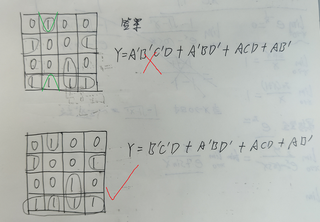 0 1 0 0
答案
1 0 0 1
Y=A'B'C'D + A'BD' + ACD + AB'
0 0 1 0
1 1 1 1
0 1 0 0
Y = B'C'D + A'BD' + ACD + AB'
1 0 0 1
0 0 1 0
1 1 1 1